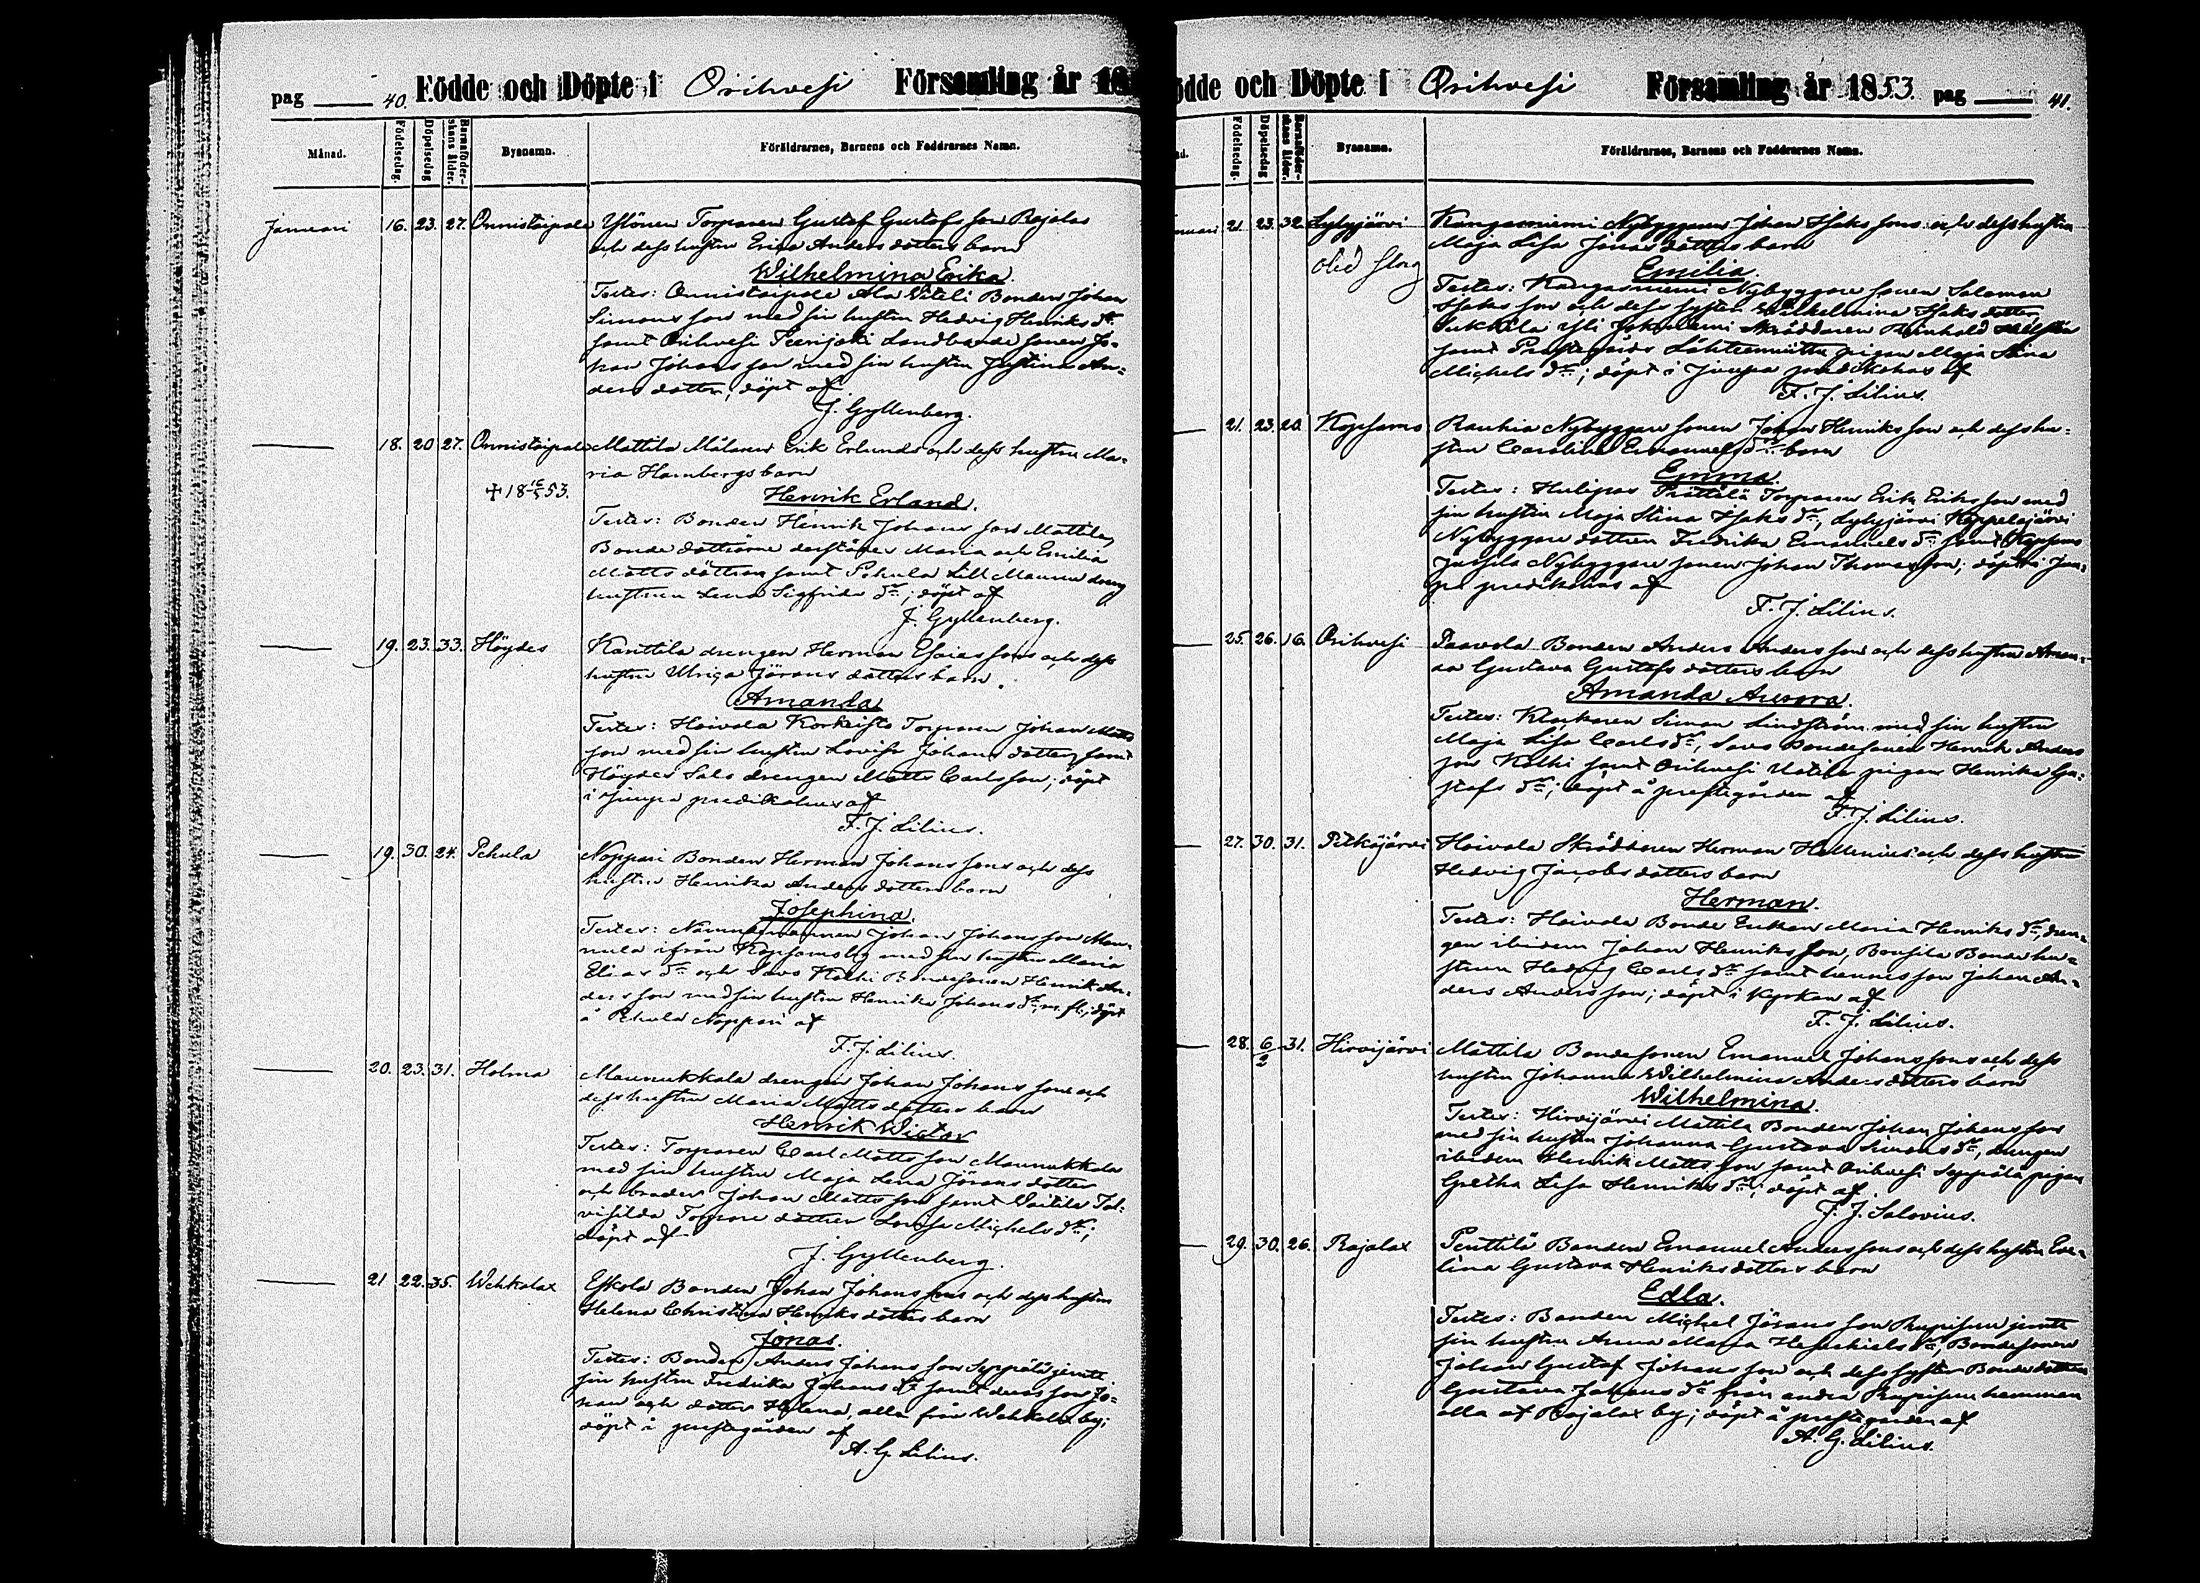 pag 40. Födde och Döpte i Orihvesi Församling år 18
Månad.
Födelsedag.
Döpelsedag
Barnaföderskans ålder.
Bysnamn.
Föräldrarnes, Barnens och Faddrarnes Namn.
Januari 16. 23. 27. Onnistaipale Ylönen Torparen Gustaf Gustafs sons Rajalas
och dess hustru Erica Anders dotters barn
Wilhelmina Erika.
Testes: Onnistaipale Ala Viteli Bonden Johan
Simons son med sin hustru Hedvig Henriks dr
samt Orihvesi Landbonde sonen Jo-
han Johans son med sin hustru Justina An-
ders dotter; döpt af
J. Gyllenberg.
18. 20 27. Onnistaipale Mattila Målaren Erik Erlunds och dess hustru Ma-
ria Hambergs barn
✝ 18 16/5 53.
Henrik Erland.
Testes: Bonden Henrik Johans son Mattila,
Bonde döttrarne derstädes Maria och Emilia
Matts döttrar samt Pehula Lill Maunu dreng
hustrun Lena Sigfrids dr; döpt af
J. Gyllenberg.
19. 23. 33. Höydes Kanttila drengen Herman Esaias sons och dess
hustru Ulrica Jörans dotters barn.
Amanda
Testes: Hoivala Korkeisto Torparen Johan Matts
son med sin hustru Lovisa Johans dotter samt
Höydes Salo drengen Matts Carlsson; döpt
i Juupa predikohus af
F. J. Lilius.
19. 30. 24. Pehula Noppari Bonden Herman Johans sons och dess
hustru Henrika Anders dotters barn
Josephina.
Testes: Nämndemannen Johan Johans son Mau-
nula ifrån Kopsamo by med sin hustru Maria
Elias dr och Savo Kolhi Bondesonen Henrik An-
ders son med sin hustru Henrika Johans dr m. fl.; döpt
å Pehula Noppari af
F. J. Lilius.
20. 23. 31. Holma Maunukkala drengen Johan Johans sons och
dess hustru Maria Matts dotters barn
Henrik Wictor
Testes: Torparen Carl Matts son Maunukkala
med sin hustru Maja Lena Jörans dotter
och broder Johan Matts son samt Waitila Tal-
visilda Torpare dottren Lovisa Michels dr;
döpt af
J. Gyllenberg.
21 22. 35. Wehkalax Eskola Bonden Johan Johans sons och dess hustru
Helena Christina Henriks dotters barn
Jonas.
Testes: Bonden Anders Johans son Seppälä jemte
sin hustru Fredrika Johans dr samt deras son Jo-
han och dotter Helena, alla från Wehkalax by;
döpt å prestegården af
A. G. Lilius.
Födde och Döpte i Orihvesi Församling år 1853. pag 41.
Födelsedag.
Döpelsedag
Barnaföderskans ålder.
Bysnamn.
Föräldrarnes, Barnens och Faddrarnes Namn.
21. 23. 32. Lylyjärvi Kangasniemi Nybyggaren Johan Isaks sons och dess hustru
Maja Lisa Jonas dotters barn
Emilia.
Testes: Kangasniemi Nybyggare sonen Salomon
Isaks son och dess syster Wilhelmina Isaks dotter,
Yli Skräddaren Reinhold
samt Prestegårds Lähteenmitta pigan Maja Stina
Michels dr; döpt i Juupa predikohus af
F. J. Lilius.
21. 23. 20. Kopsamo Rauhia Nybyggare sonen Johan Henriks son och dess hu-
stru Carolina Emanuels drs barn
Emma.
Testes: Hulipas Prättilä Torparen Erik Eriks son med
sin hustru Maja Stina Isaks dr, Lylyjärvi Keppelojärvi
Nybyggare dottren Fredrika Emanuels dr samt Kopsamo
Jussila Nybyggare sonen Johan Thomasson; döpt i Juu-
pa predikohus af
F. J. Lilius.
25. 26. 16. Orihvesi Paavola Bonden Anders Anders son och dess hustru Aman-
da Gustava Gustafs dotters barn
Amanda Aurora.
Testes: Klockaren Simon Lindström med sin hustru
Maja Lisa Carls dr, Savo Bondesonen Henrik Anders
son Kolhi samt Orihvesi Uotila pigan Henrika Gu-
stafs dr; döpt å prestegården af
F. J. Lilius.
27. 30. 31. Pitkäjärvi Hoivala Skräddaren Herman Hellenius och dess hustru
Hedvig Jacobs dotters barn
Herman.
Testes: Hoivala Bonde Enkan Maria Henriks dr, dren-
gen ibidem Johan Henriks son, Bonsila Bonde hu-
strun Hedvig Carls dr samt hennes son Johan An-
ders Andersson; döpt i Kyrkan af
F. J. Lilius.
28. 6/2 31. Hirvijärvi Mattila Bondesonen Emanuel Johans sons och dess
hustru Johanna Wilhelmina Anders dotters barn
Wilhelmina.
Testes: Hirvijärvi Mattila Bonden Johan Johans son
med sin hustru Johanna Gustava Simons dr, drengen
ibidem Henrik Matts son samt Orihvesi Seppälä pigan
Gretha Lisa Henriks dr; döpt af
F. J. Salovius.
29. 30. 26. Rajalax Penttilä Bonden Emanuel Anders sons och dess hustru Eve-
lina Gustava Henriks dotters barn
Edla.
Testes: Bonden Michel Jörans son Rupisuu jemte
sin hustru Anna Maria Heskiels dr, Bondesonen
Johan Gustaf Johans son och dess syster Bonde dottren
Gustava Johans dr från andra Rupisuu hemman
alla af Rajalax by; döpt å prestegården af
A. G. Lilius.